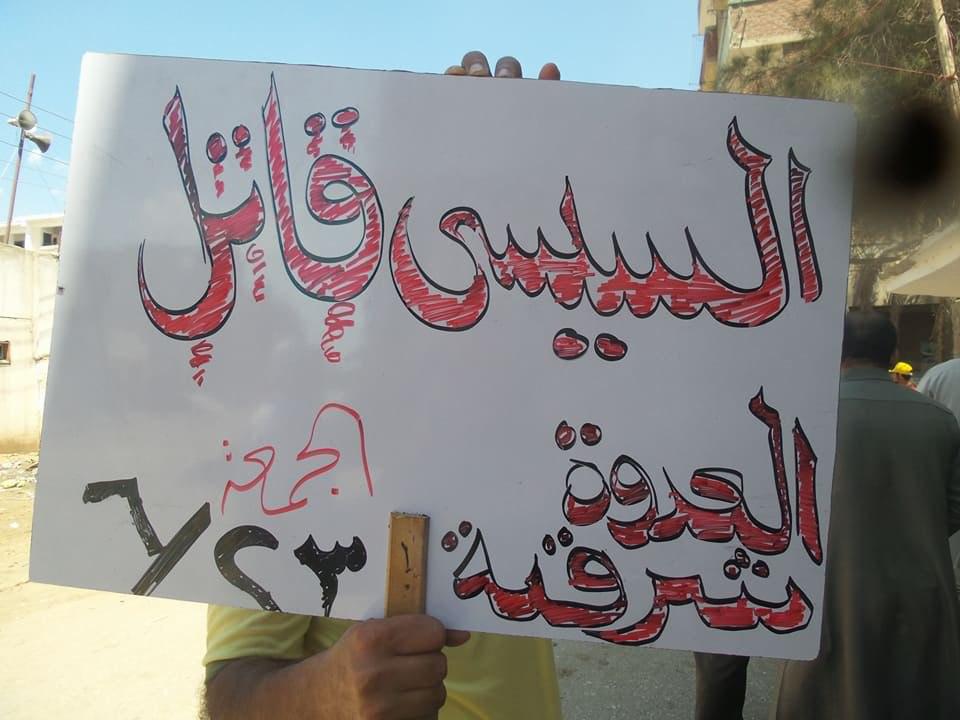 السيسى قاتل
العدوة
شرقية
الجمعة
٢٣/٦